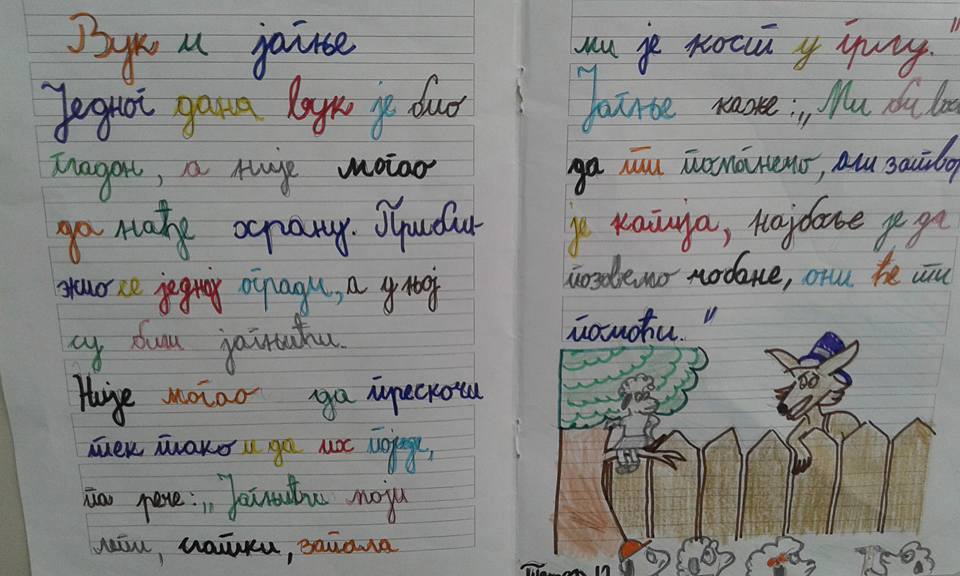 Вук и јагње
Једног дана вук је био
гладан, а није могао
да нађе храну. Прибли-
жио се једној огради, а у њој
су били јагњићи.
Није могао да прескочи
тек тако и да их поједе,
па рече: „Јагњићи моји
лепи, слатки, запала
ми је кост у грлу."
Јагње каже: „Ми би
да ти помогнемо, али затвор
је капија, најбоље је да
позовемо чобане, они ће ти
помоћи."